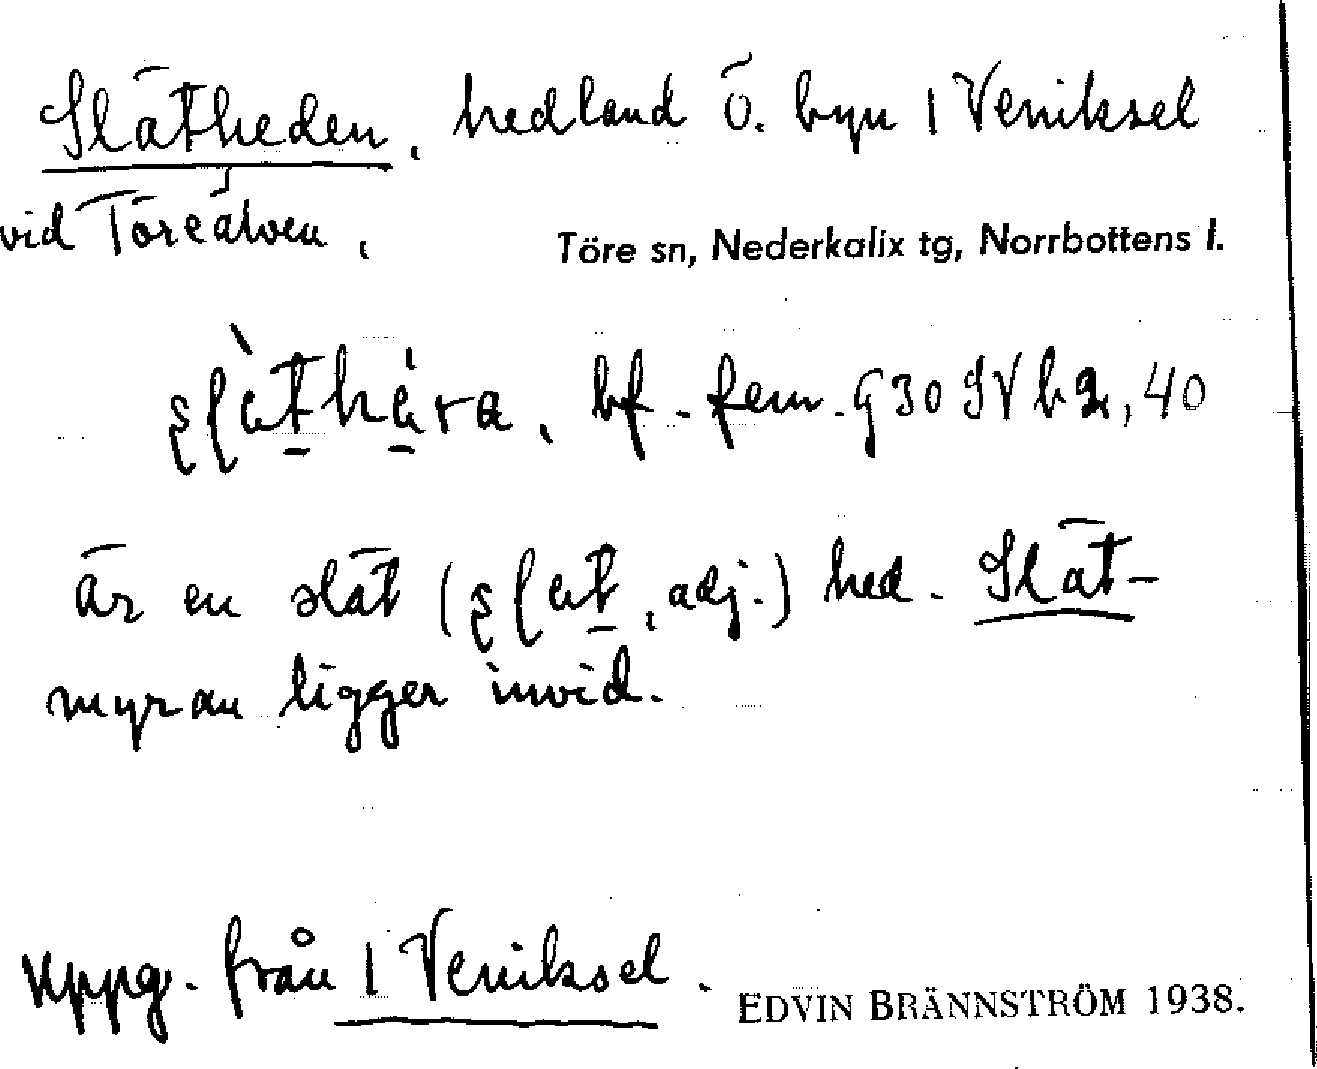 Slätheden, hedland ö. byn 1 Veniksel
vid Töreälven,
Töre sn, Nederkalix tg, Norrbottens l.
bf. fem. G 30 IV b 2, 40
är en slät (, adj.) hed. Slät-
myran ligger invid.
uppg. från 1 Veniksel.
EDVIN BRÄNNSTRÖM 1938.